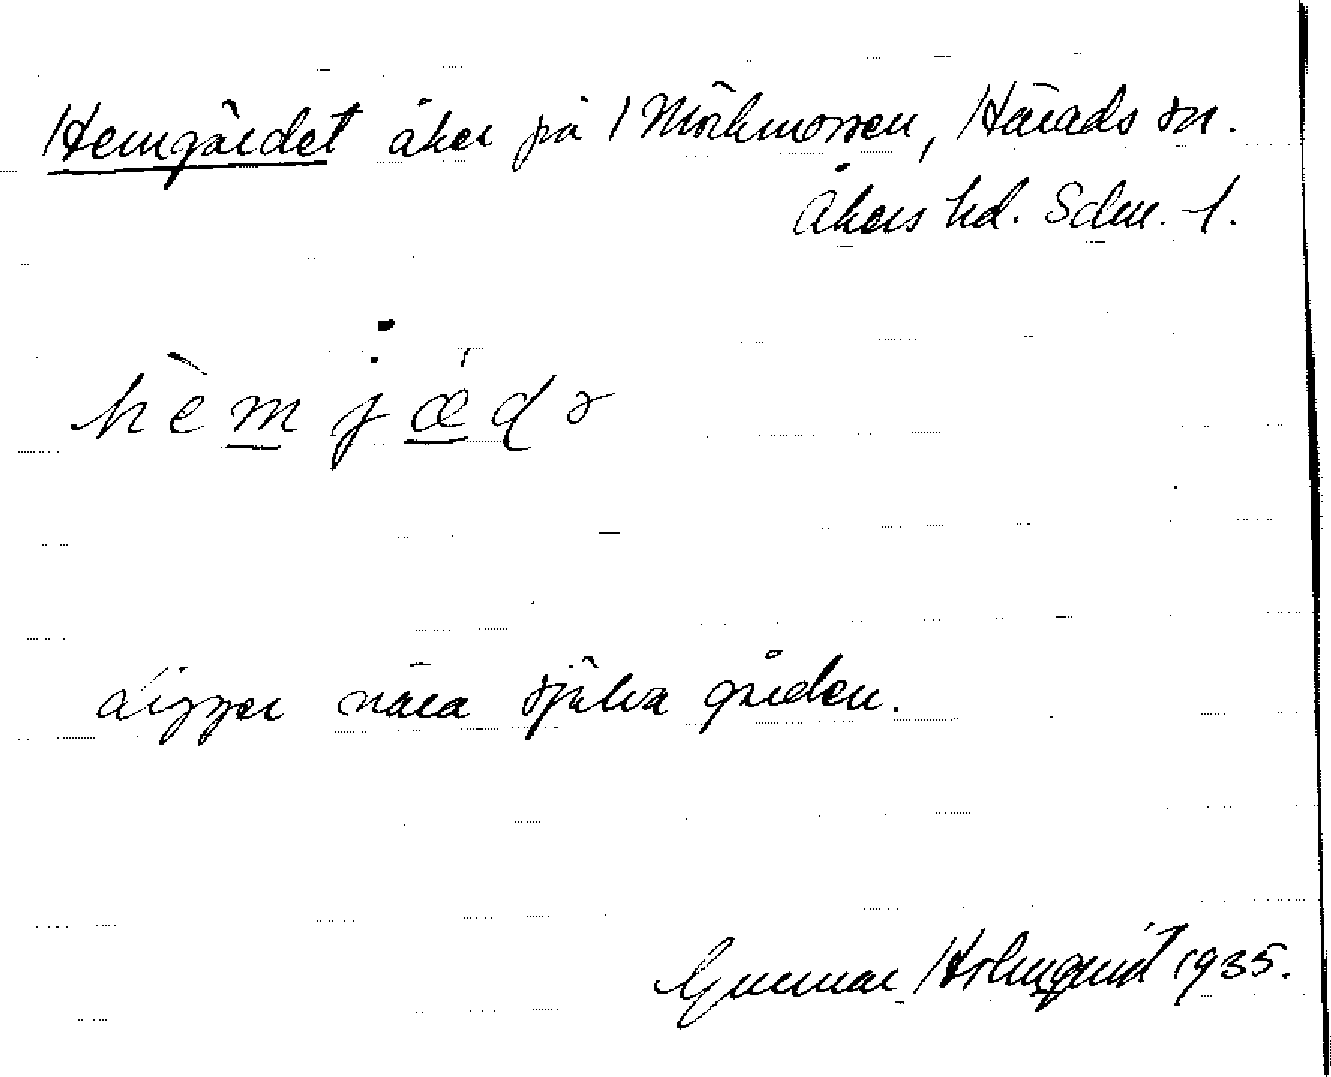 Hemgärdet åker på Mörkmossen, Härads sn.
Åkers hd. Sdm. l.
hèmjæ̀ḍə
Ligger nära själva gården.
Gunnar Holmqvist 1935.